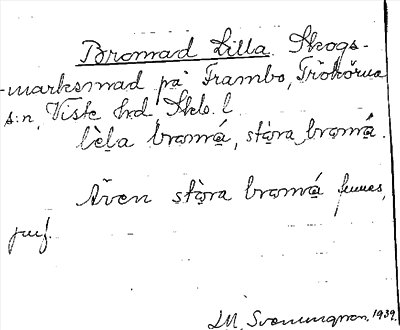 Bromad Lilla. Skogs-
-marksmad på Frambo, Trökörna
s:n, Viste hrd Skb. l.
lèla bramá, stòra bramá.
Även stòra bramá finnes,
jmf.
M. Svenungson. 1939.